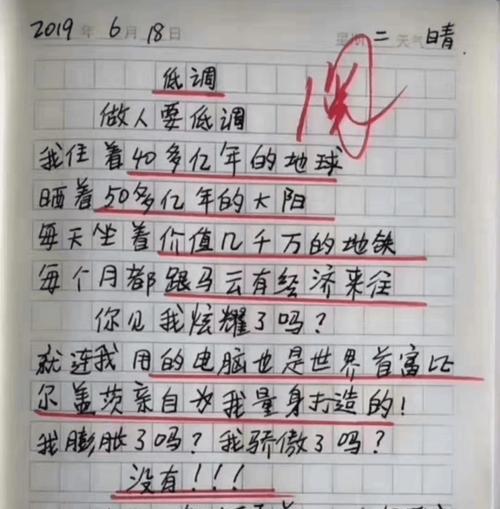 2019年6月18日 星期二 天气晴
低调
做人要低调
我住着40多亿年的地球
晒着50多亿年的太阳
每天坐着价值几千万的地铁
每个月都跟马云有经济来往
你见我炫耀了吗?
就连我用的电脑也是世界首富比
尔盖茨亲自为我量身打造的!
我膨胀了吗?我骄傲了吗?
没有!!!